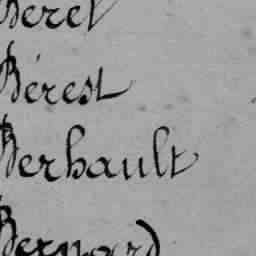 Beret
Bérest
Berhault
Bernard